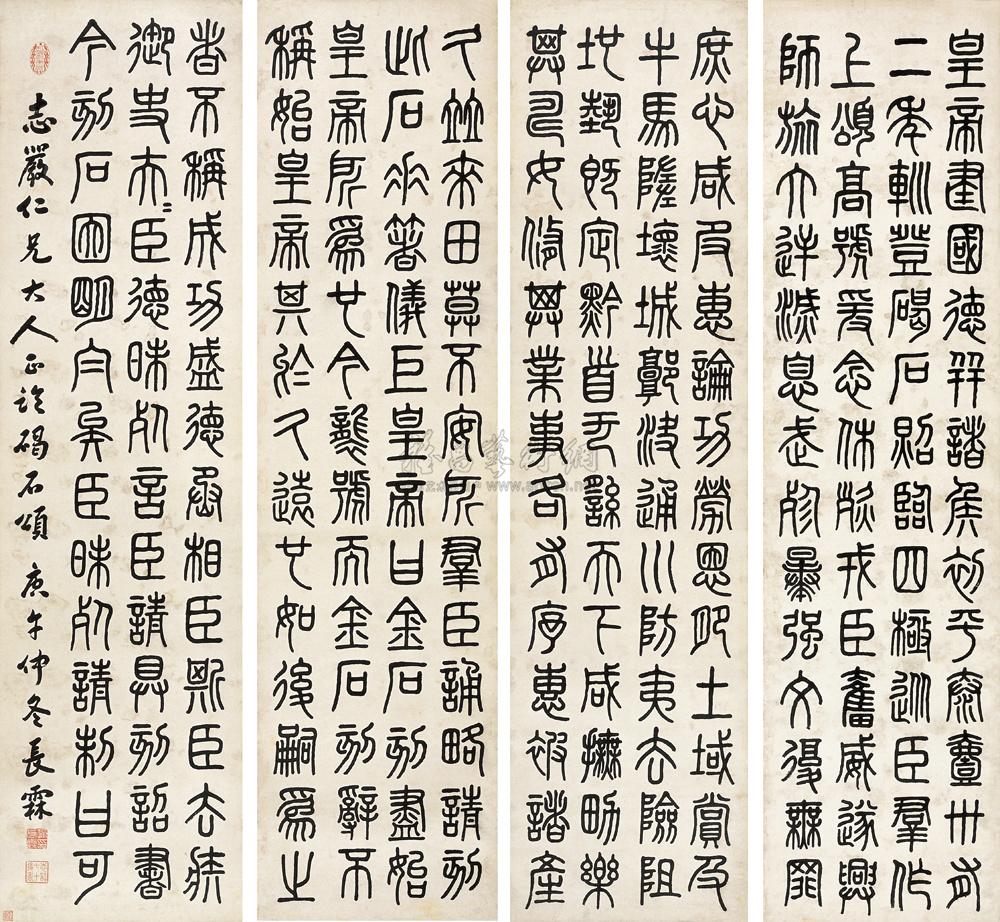 皇帝建國德并諸侯初平泰壹卅有
二年巡登碣石照臨四極從臣羣作
上頌高號爰念休烈戎臣奮威遂興
師旅大逆滅息武殄暴強文復無罪
庶心咸服惠論功勞恩肥土域賞及
牛馬隳壞城郭決通川防夷去險阻
地勢既定黔首无繇天下咸撫男樂
其疇女修其業事各有序惠被諸產
久並來田莫不安所羣臣誦略請刻
此石垂著儀矩皇帝曰金石刻盡始
皇帝所為也今襲號而金石刻辭不
稱始皇帝其於久遠也如後嗣為之
者不稱成功盛德丞相臣斯臣去疾
御史夫=臣德昧死言臣請具刻詔書
今刻石因明白矣臣昧死請制曰可
志嚴仁兄大人正臨碣石頌 庚午仲冬長霖